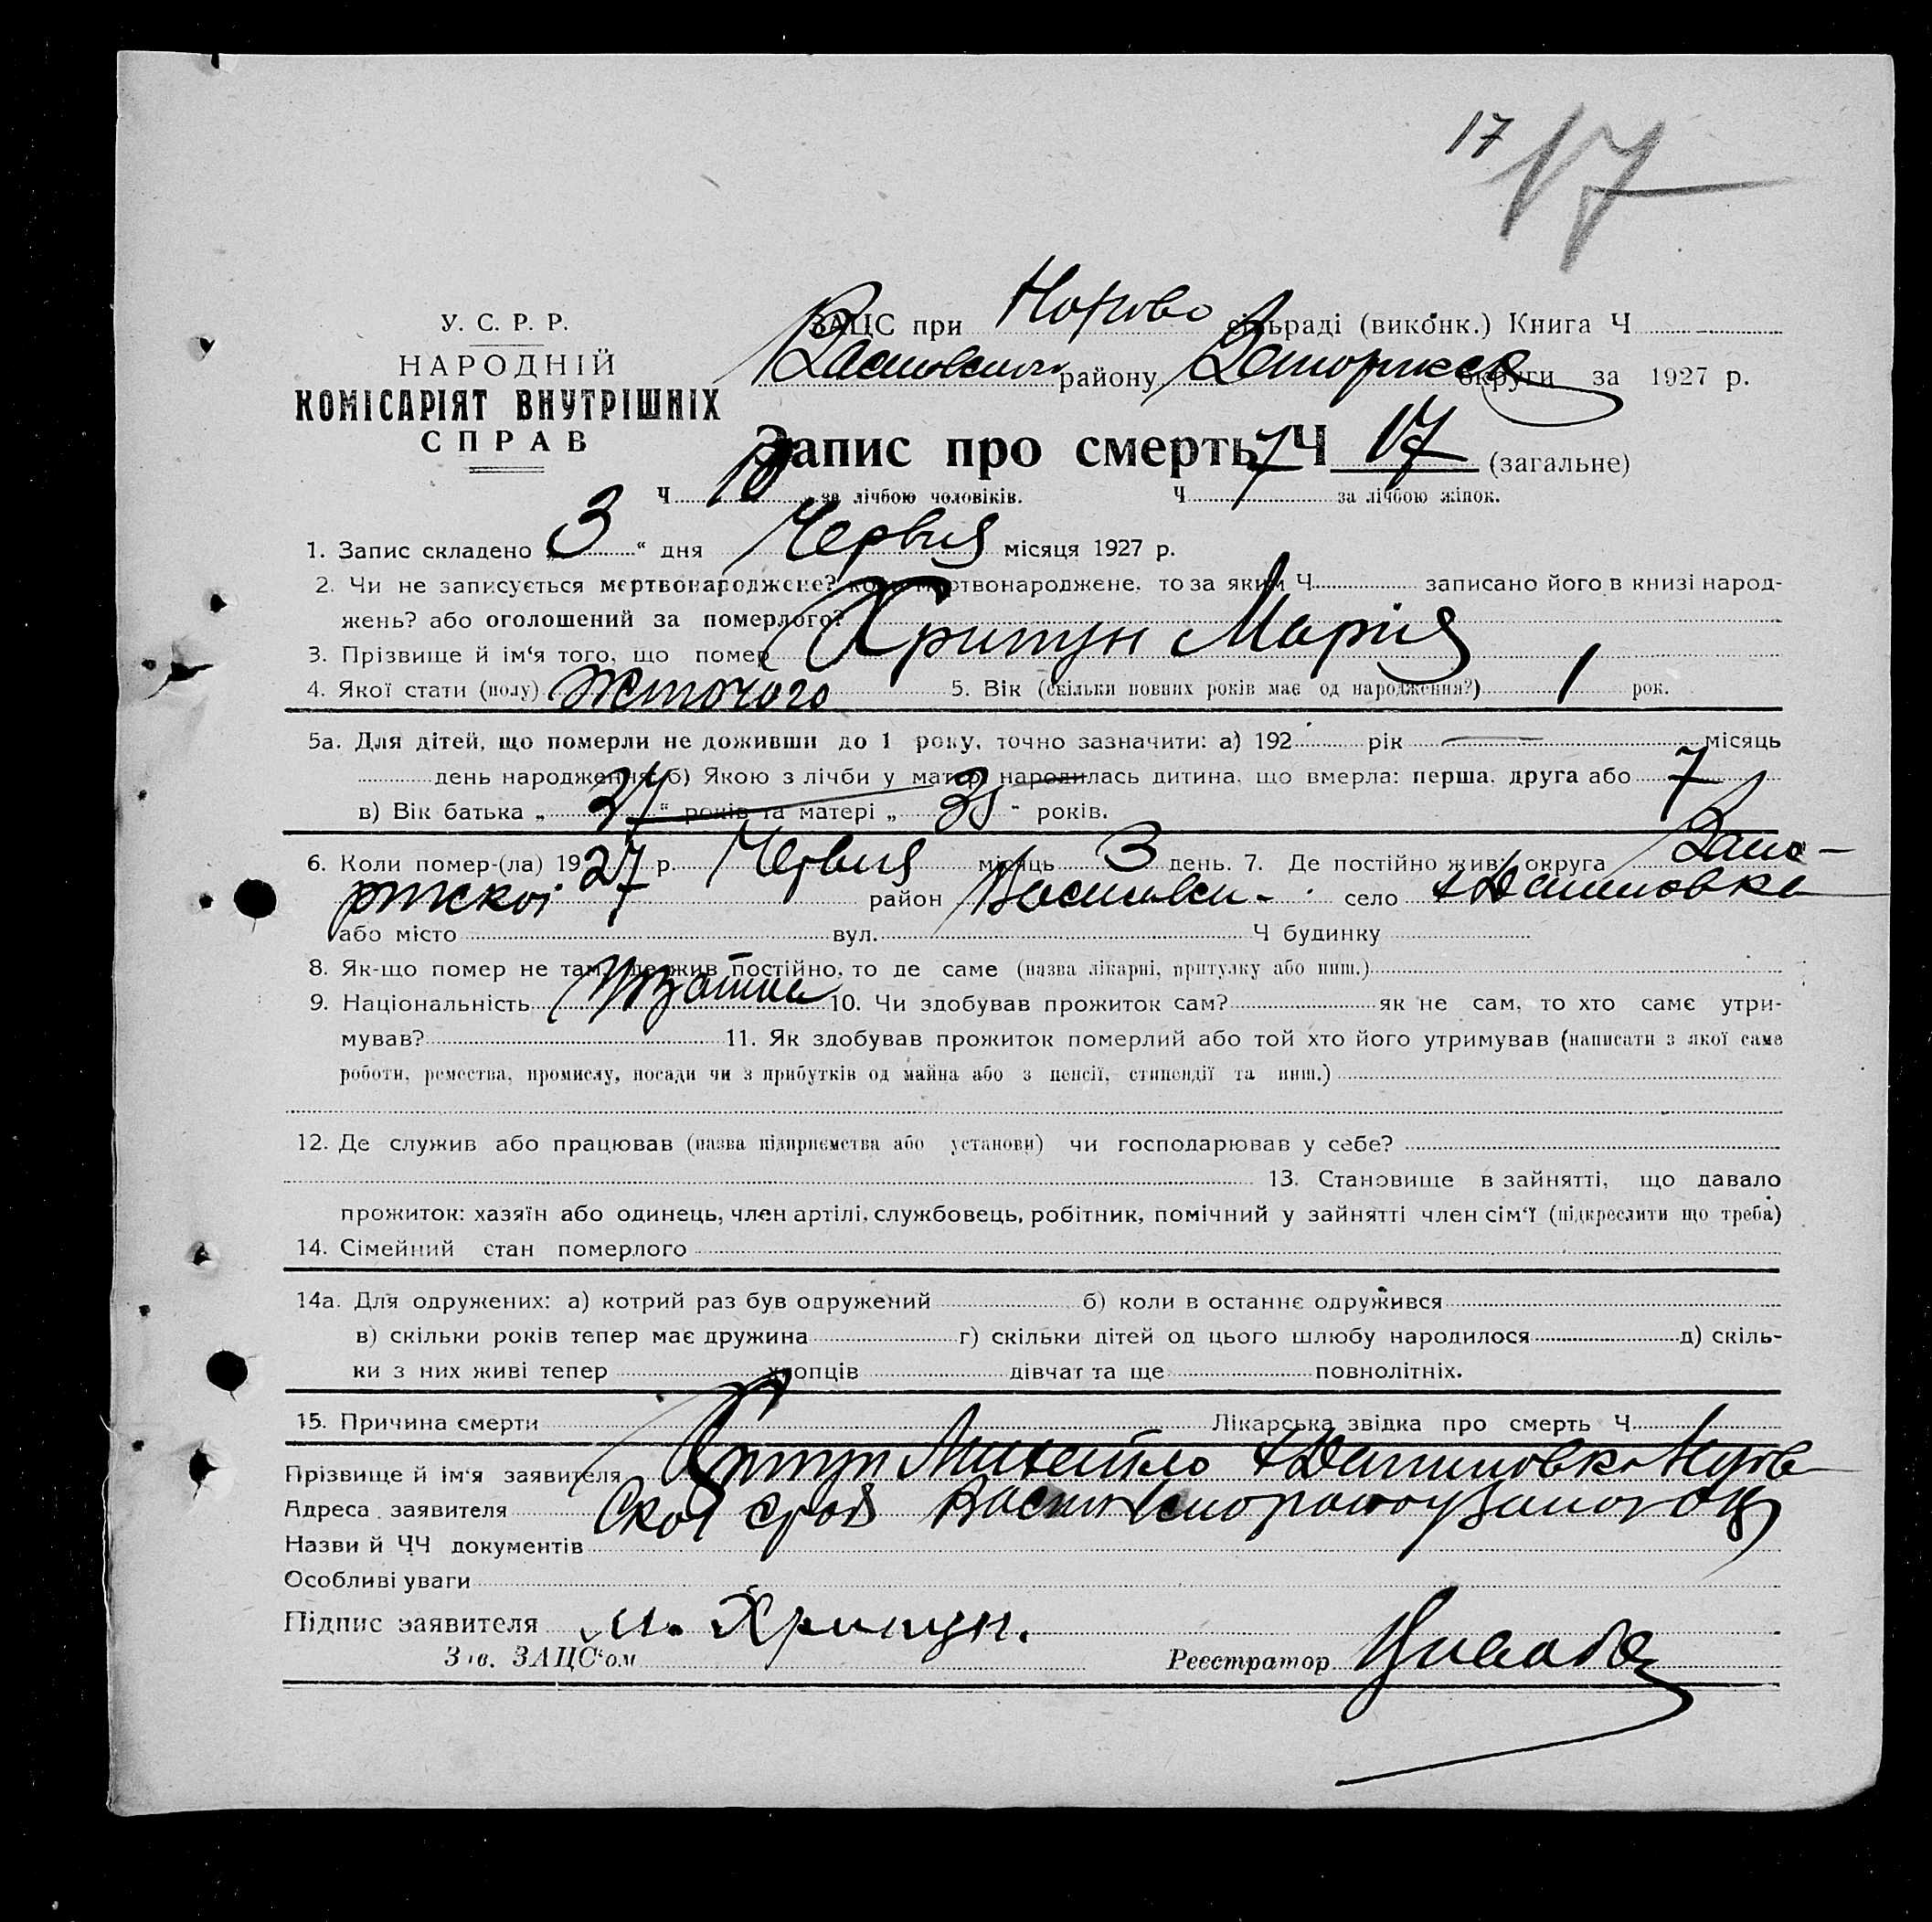 17 17
У. С. Р. Р.
НАРОДНІЙ
КОМІСАРІЯТ ВНУТРІШНІХ
СПРАВ
ЗАЦС при сільраді (виконк.) Книга Ч
району округи за 1927 р.
Запис про смерть 7 Ч 17 (загальне)
Ч 10 за лічбою чоловіків. Ч 7 за лічбою жінок.
1. Запис складено „ 3 “ дня Червня місяця 1927 р.
2. Чи не записується мертвонароджене? коли мертвонароджене, то за яким Ч записано його в книзі народ-
жень? або оголошений за померлого?
3. Прізвище й ім‘я того, що помер Хрипун Марія
4. Якої стати (полу) 5. Вік (скільки повних років має од народження?) 1 рок.
5а. Для дітей, що померли не доживши до 1 року, точно зазначити: а) 192 рік — місяць
день народження; б) Якою з лічби у матері народилась дитина, що вмерла: перша, друга або 7
в) Вік батька „ “ років та матері „ “ років.
6. Коли помер-(ла) 1927 р. Червня місяць 3 день. 7. Де постійно жив: округа Запо-
ріжскої район село
або місто вул. Ч будинку
8. Як-що помер не там, де жив постійно, то де саме (назва лікарні, притулку або инш.)
9. Національність 10. Чи здобував прожиток сам? як не сам, то хто саме утри-
мував? 11. Як здобував прожиток померлий або той хто його утримував (написати з якої саме
роботи, ремества, промислу, посади чи з прибутків од майна або з пенсії, стипендії та инш.)
12. Де служив або працював (назва підприємства або установи) чи господарював у себе?
13. Становище в зайнятті, що давало
прожиток: хазяїн або одинець, член артілі, службовець, робітник, помічний у зайнятті член сім‘ї (підкреслити що треба)
14. Сімейний стан померлого
14а. Для одружених: а) котрий раз був одружений б) коли в останнє одружився
в) скільки років тепер має дружина г) скільки дітей од цього шлюбу народилося д) скіль-
ки з них живі тепер хлопців дівчат та ще повнолітніх.
15. Причина смерти Лікарська звідка про смерть Ч
Прізвище й ім‘я заявителя Хрипун Михайло
Адреса заявителя
Назви й ЧЧ документів
Особливі уваги
Підпис заявителя М. Хрипун.
Зав. ЗАЦС‘ом Реєстратор